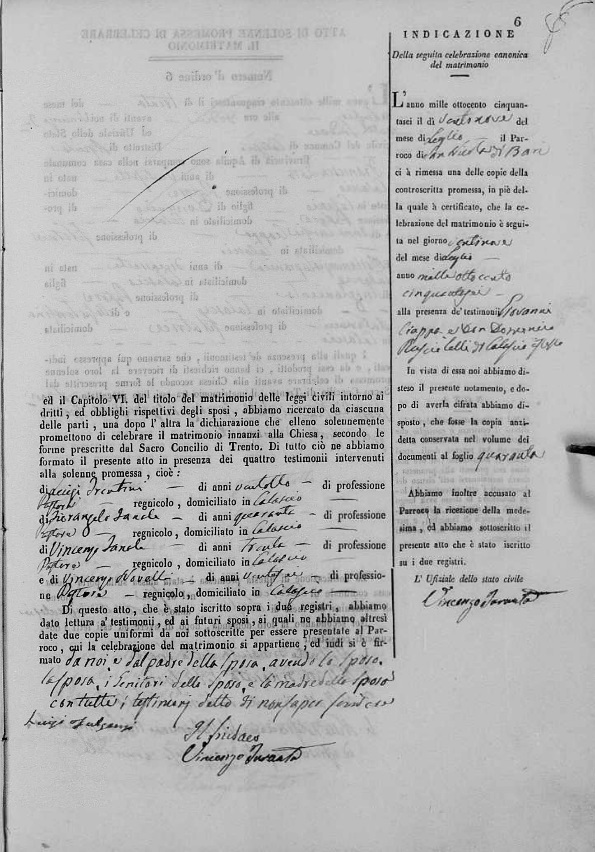 6
INDICAZIONE
Della seguita celebrazione canonica
del matrimonio
L'anno mille ottocento cinquan-
tasei il dì ventinove del
mese di Luglio il Par-
roco di San Nicola di Bari
ci à rimessa una delle copie della
controscritta promessa, in piè del-
la quale à certificato, che la ce-
lebrazione del matrimonio è segui-
ta nel giorno ventinove
del mese di Luglio
anno mille ottocento
cinquantasei
alla presenza de' testimonii Giovanni
Ciappa e Don Domenico
di Calascio
In vista di essa noi abbiamo di-
steso il presente notamento, e do-
po di averla cifrata abbiamo di-
sposto, che fosse la copia anzi-
detta conservata nel volume dei
documenti al foglio quaranta
Abbiamo inoltre accusato al
Parroco la ricezione della mede-
sima, ed abbiamo sottoscritto il
presente atto che è stato iscritto
su i due registri.
L' Ufiziale dello stato civile
Vincenzo Taranta
ed il Capitolo VI. del titolo del matrimonio delle leggi civili intorno ai
dritti, ed obblighi rispettivi degli sposi, abbiamo ricercato da ciascuna
delle parti, una dopo l' altra la dichiarazione che elleno solennemente
promettono di celebrare il matrimonio innanzi alla Chiesa, secondo le
forme prescritte dal Sacro Concilio di Trento. Di tutto ciò ne abbiamo
formato il presente atto in presenza dei quattro testimonii intervenuti
alla solenne promessa, cioè:
di Luigi di anni ventotto di professione
Pastore regnicolo, domiciliato in Calascio
di Pierangelo di anni quaranta di professione
Pastore regnicolo, domiciliato in Calascio
di Vincenzo di anni trenta di professione
Pastore regnicolo, domiciliato in Calascio
e di Vincenzo di anni di professio-
ne Pastore regnicolo, domiciliato in Calascio
Di questo atto, che è stato iscritto sopra i due registri, abbiamo
dato lettura a' testimonii, ed ai futuri sposi, ai quali ne abbiamo altresì
date due copie uniformi da noi sottoscritte per essere presentate al Par-
roco, cui la celebrazione del matrimonio si appartiene, ed indi si è fir-
mato da noi, e dal padre della Sposa, avendo lo Sposo,
la Sposa, i Genitori dello Sposo, e la madre della Sposa
con tutti i testimonj detto di non saper scrivere
Luigi
Il Sindaco
Vincenzo Taranta